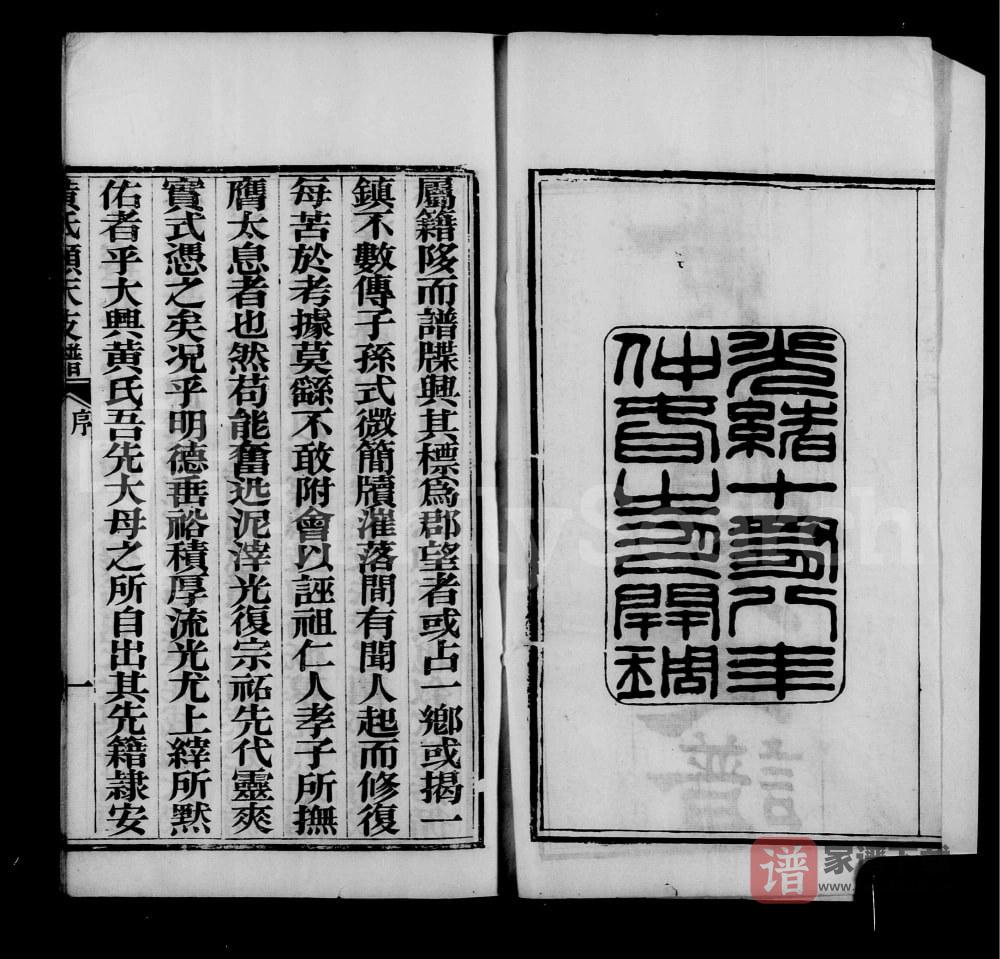 光緒十年
仲開
屬籍陊而譜牒興其標爲郡望者或占一鄉或揭一
鎮不數傳子孫式微簡牘漼落間有聞人起而修復
每苦於考據莫繇不敢附會以誣祖仁人孝子所撫
膺太息者也然苟能奮迅泥滓光復宗祏先代靈爽
實式憑之矣况乎明德垂裕積厚流光尤上縡所默
佑者乎大興黃氏吾先大母之所自出其先籍隷安
黃氏順天支譜 序 一
谱
www.